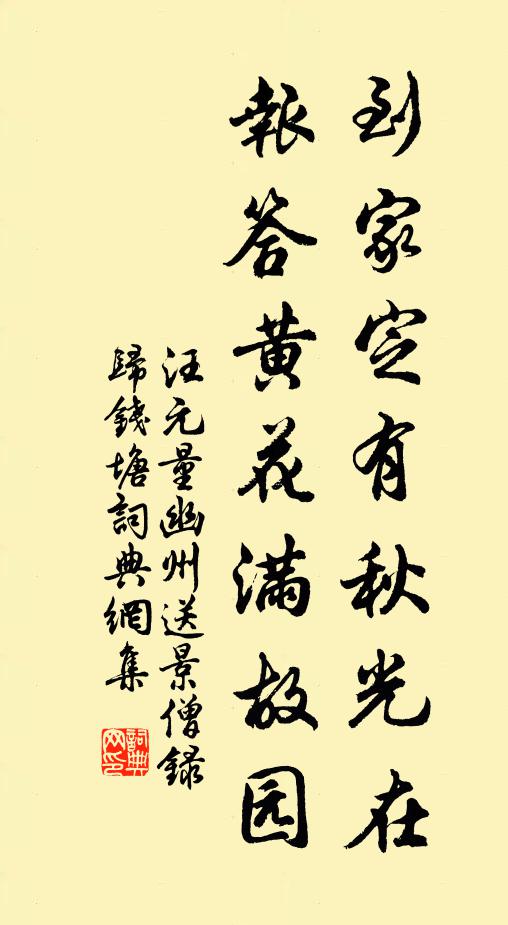 到家定有秋光在
報答黄花满故园
汪元量幽州送景僧録
歸錢塘詞典網集
詞典网印